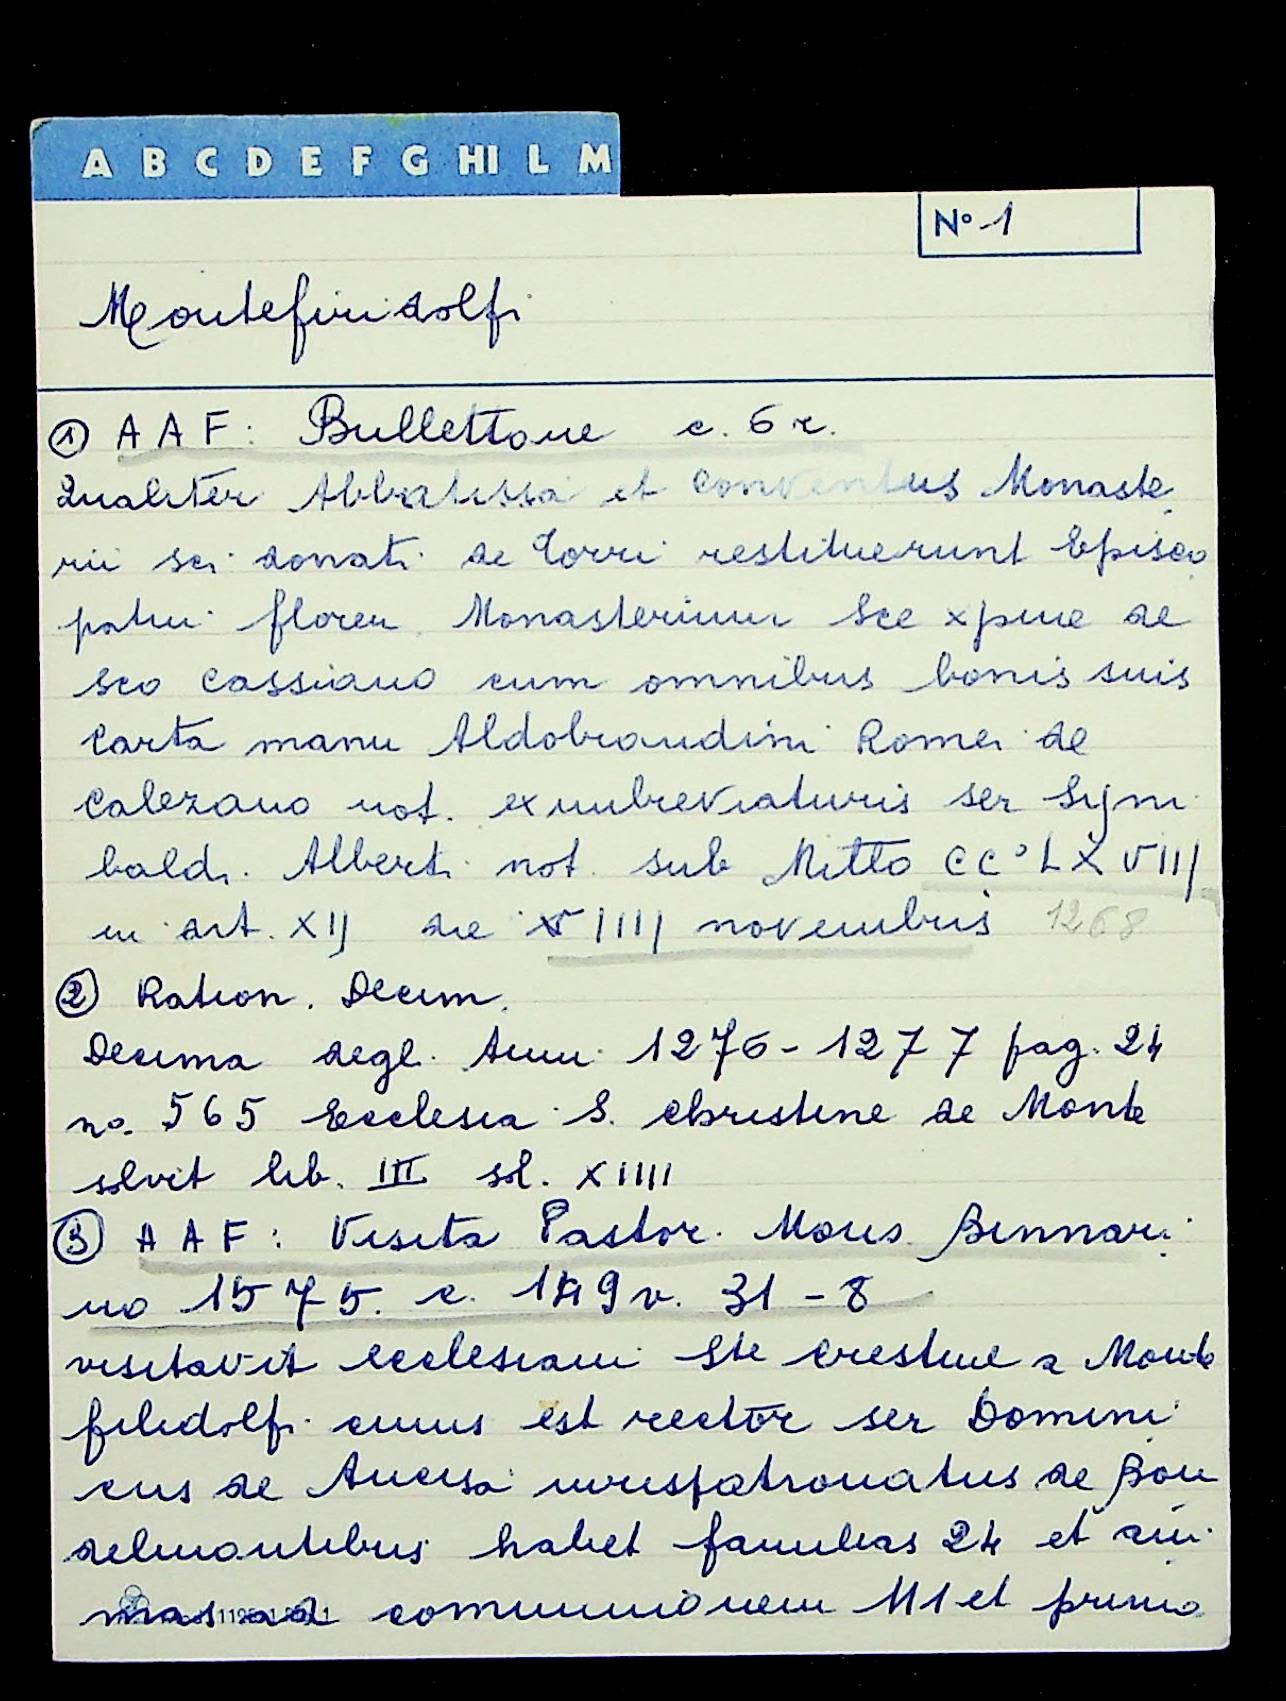 A B C D E F G HI L M
N° 1
Montefiridolfi
① A A F: Bullettone c. 6 r.
Qualiter Abbatissa et Conventus Monaste
rii sci donati de Torri restituerunt Episco
patui floren Monasterium Sce xpine de
sco Cassiano cum omnibus bonis suis
Carta manu Aldobrandini Romei de
Calezano not. ex imbreviaturis ser Sym
baldi Alberti not. sub Mitto CC° LXVIII
in dit. XIJ die VIIII novembris 1268
② Ration. Decim.
Decima degli Anni 1276-1277 pag. 24
no. 565 Ecclesia S. Christine de Monte
solvit lib. III sol. XIIII
③ A A F: Visita Pastor. Mons. Binnari
no 1575. c. 149v. 31-8
visitavit ecclesiam Ste Cristine a Monte
filidolfi cuius est rector ser Domini
cus de Ancisa iurispatronatus de Bon
delmontibus habet familias 24 et ani
mas ad communionem 111 et primo